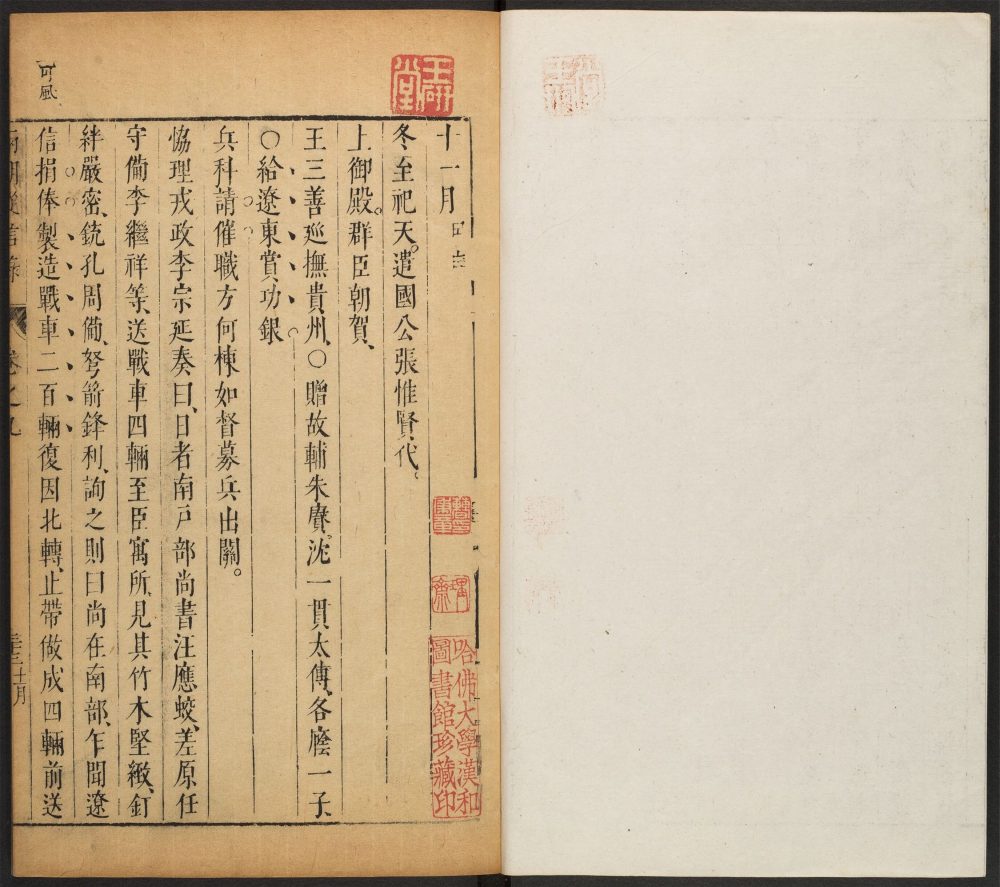 十一月
冬至祀天。遣國公張惟賢代。
上御殿。群臣朝賀、
王三善巡撫貴州、○贈故輔朱賡、沈一貫太傅、各廕一子、
○給遼東賞功銀
兵科請催職方何棟如督募兵出關。
恊理戎政李宗延奏曰、日者南戸部尚書汪應蛟、差原任
守備李繼祥等、送戰車四輛至臣寓所、見其竹木堅緻、釘
絆嚴密、銃孔周備、弩箭鋒利、詢之則曰尚在南部、乍聞遼
信捐俸製造戰車二百輛復因北轉、止帶做成四輛前送
可風
兩朝從信錄
卷之九
十一月
玉研堂
哈佛大學漢和
圖書館珍藏印